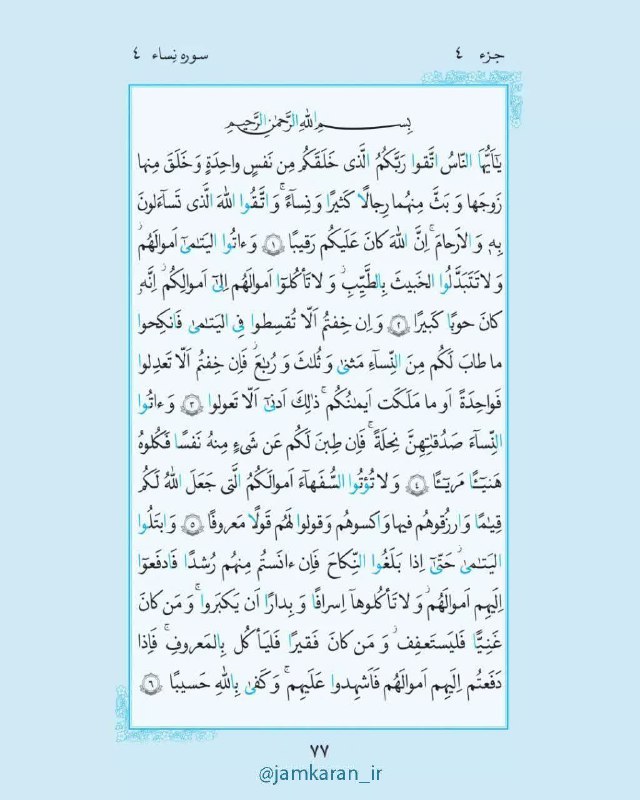 جزء ٤
سوره نِساء ٤
بِسمِ اللهِ الرَّحمٰنِ الرَّحیمِ
یٰٓاَیُّهَا النّاسُ اتَّقوا رَبَّکُمُ الَّذی خَلَقَکُم مِن نَفسٍ واحِدَةٍ وَ خَلَقَ مِنها
زَوجَها وَ بَثَّ مِنهُما رِجالًا کَثیرًا وَ نِساءًۚ وَ اتَّقُوا اللهَ الَّذی تَساءَلونَ
بِهٖ وَ الاَرحامَۚ اِنَّ اللهَ کانَ عَلَیکُم رَقیبًا ﴿١﴾ وَ ءاتُوا الیَتامیٰٓ اَموالَهُمۖ
وَ لا تَتَبَدَّلُوا الخَبیثَ بِالطَّیِّبِۖ وَ لا تَأکُلوٓا اَموالَهُم اِلیٰٓ اَموالِکُمۚ اِنَّهٗ
کانَ حوبًا کَبیرًا ﴿٢﴾ وَ اِن خِفتُم اَلّا تُقسِطوا فِی الیَتامیٰ فَانکِحوا
ما طابَ لَکُم مِنَ النِّساءِ مَثنیٰ وَ ثُلاثَ وَ رُباعَۖ فَاِن خِفتُم اَلّا تَعدِلوا
فَواحِدَةً اَو ما مَلَکَت اَیمانُکُمۚ ذٰلِکَ اَدنیٰٓ اَلّا تَعولوا ﴿٣﴾ وَ ءاتُوا
النِّساءَ صَدُقاتِهِنَّ نِحلَةًۚ فَاِن طِبنَ لَکُم عَن شَیءٍ مِنهُ نَفسًا فَکُلوهُ
هَنیـًٔا مَریـًٔا ﴿٤﴾ وَ لا تُؤتُوا السُّفَهاءَ اَموالَکُمُ الَّتی جَعَلَ اللهُ لَکُم
قِیٰمًا وَ ارزُقوهُم فیها وَ اکسوهُم وَ قولوا لَهُم قَولًا مَعروفًا ﴿٥﴾ وَ ابتَلُوا
الیَتامیٰ حَتّیٰٓ اِذا بَلَغُوا النِّکاحَ فَاِن ءانَستُم مِنهُم رُشدًا فَادفَعوٓا
اِلَیهِم اَموالَهُمۖ وَ لا تَأکُلوهآ اِسرافًا وَ بِدارًا اَن یَکبَرواۚ وَ مَن کانَ
غَنِیًّا فَلیَستَعفِفۖ وَ مَن کانَ فَقیرًا فَلیَأکُل بِالمَعروفِۚ فَاِذا
دَفَعتُم اِلَیهِم اَموالَهُم فَاَشهِدوا عَلَیهِمۚ وَ کَفیٰ بِاللهِ حَسیبًا ﴿٦﴾
٧٧
@jamkaran_ir